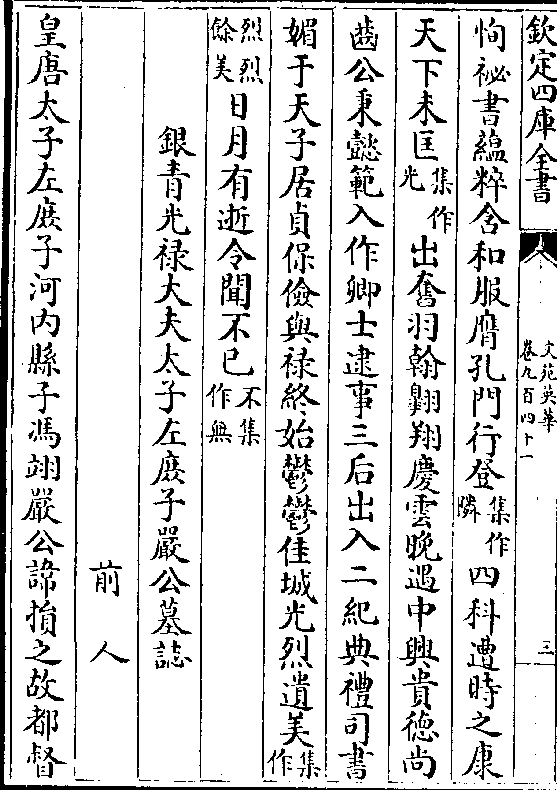 欽定四庫全書
文苑英華
卷九百四十一
三
恂祕書蘊粹含和服膺孔門行登集作隣四科遭時之康
天下未匡集作光出奮羽翰翺翔慶雲晚遇中興貴德尚
齒公秉懿範入作卿士逮事三后出入二紀典禮司書
媚于天子居貞保儉與禄終始鬱鬱佳城光烈遺美集作
烈烈餘美日月有逝令聞不已不集作無
銀青光禄大夫太子左庶子嚴公墓誌
前人
皇唐太子左庶子河内縣子馮翊嚴公諱損之故都督